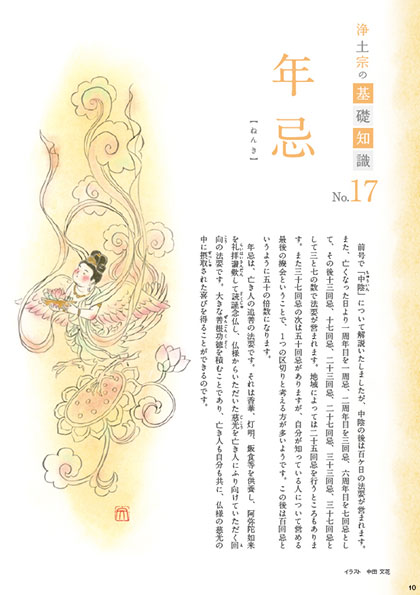 浄土宗の基礎知識
No.17
年忌
【ねんき】
前号で「中陰」について解説いたしましたが、中陰の後は百ケ日の法要が営まれます。
また、亡くなった日より一周年目を一周忌、二周年目を三回忌、六周年目を七回忌とし
て、その後十三回忌、十七回忌、二十三回忌、二十七回忌、三十三回忌、三十七回忌と
して三と七の数で法要が営まれます。地域によっては二十五回忌を行うところもありま
す。また三十七回忌の次は五十回忌がありますが、自分が知っている人について営める
最後の機会ということで、1つの区切りと考える方が多いようです。この後は百回忌と
いうように五十の倍数になります。
年忌は、亡き人の追善の法要です。それは香華、灯明、飯食等を供養し、阿弥陀如来
を礼拝讃歎して読誦念仏し、仏様からいただいた慈光を亡き人にふり向けていただく回
向の法要です。大きな善根功徳を積むことであり、亡き人も自分も共に、仏様の慈光の
中に摂取された喜びを得ることができるのです。
イラスト 中田 文花
10